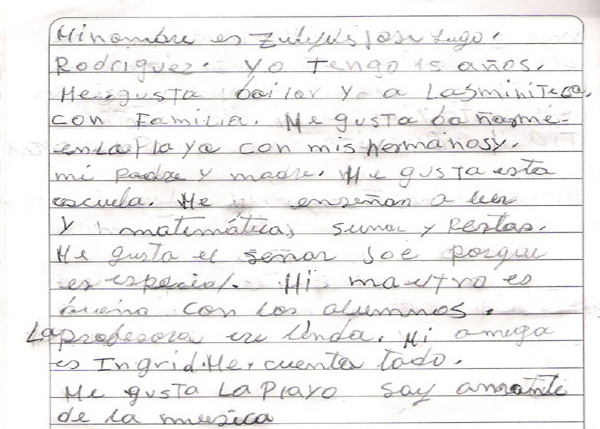 Mi nombre es Zuleydis Jose Lugo.
Rodriguez. Yo tengo 15 años.
Me gusta bailar y a Lasminiteca.
con Familia. Me gusta bañarme
en La Playa con mis hermanos y.
mi padre y madre. Me gusta esta
escuela. Me enseñan a leer
y matemáticas sumar y Restas.
Me gusta el señor Joe porque
es especial. Mi maestro es
bueno con los alumnos.
La profesora es linda. Mi amiga
es Ingrid. Me cuenta todo.
Me gusta La Playa soy amante
de la musica